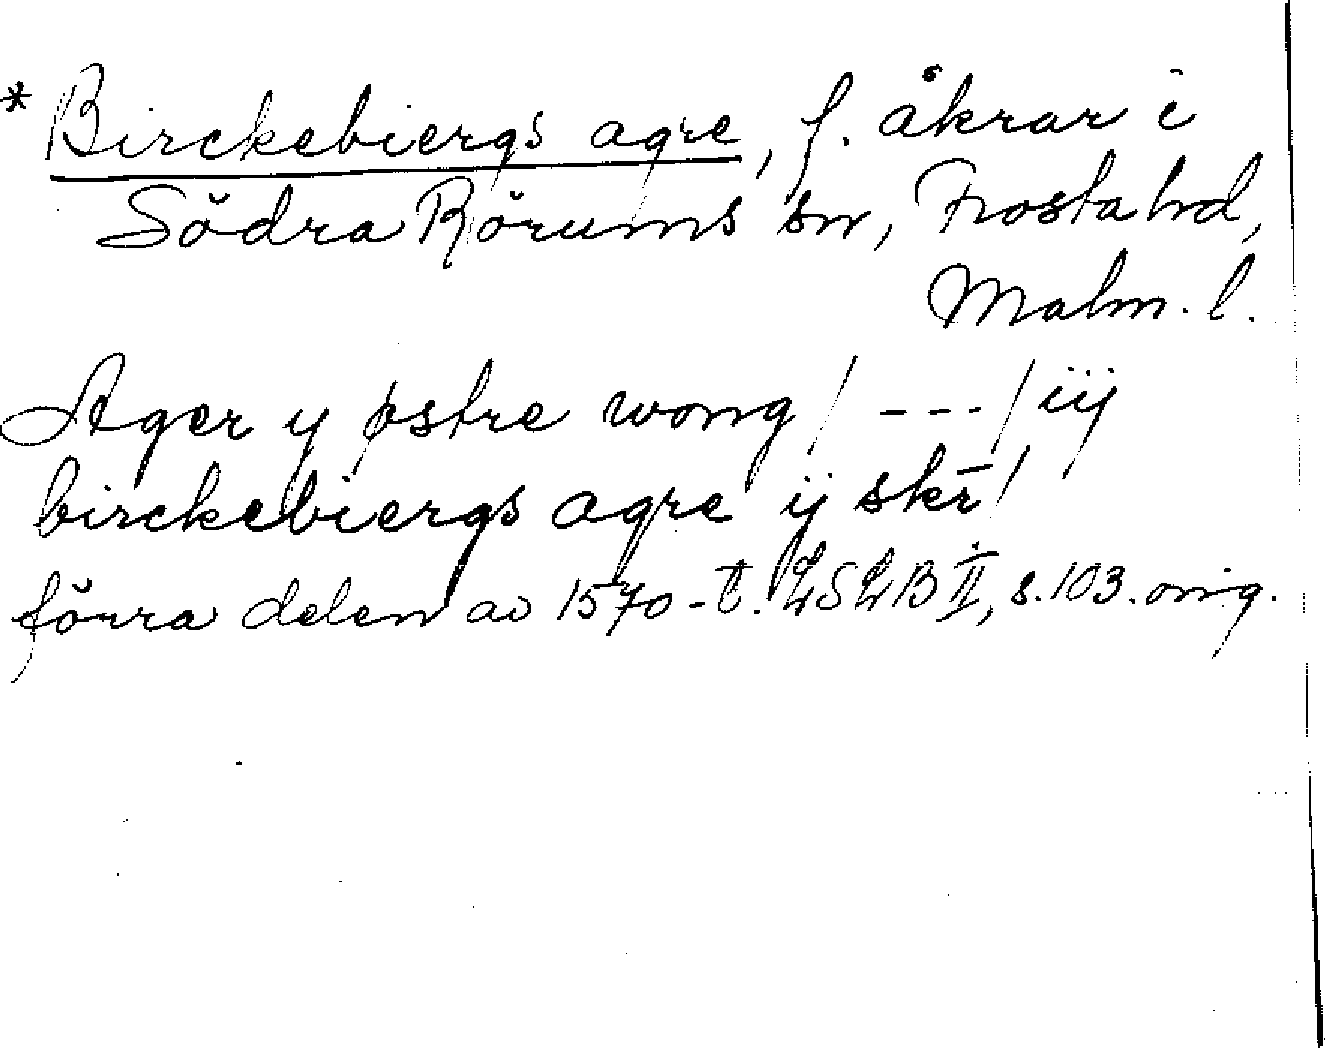 * Birckebiergs agre, f. åkrar i
Södra Rörums sn, Frosta hd,
Malm. l.
Ager y østre wong / --- / iij
birckebiergs agre ij skr̄ /
förra delen av 1570-t. LSLB II, s. 103. orig.